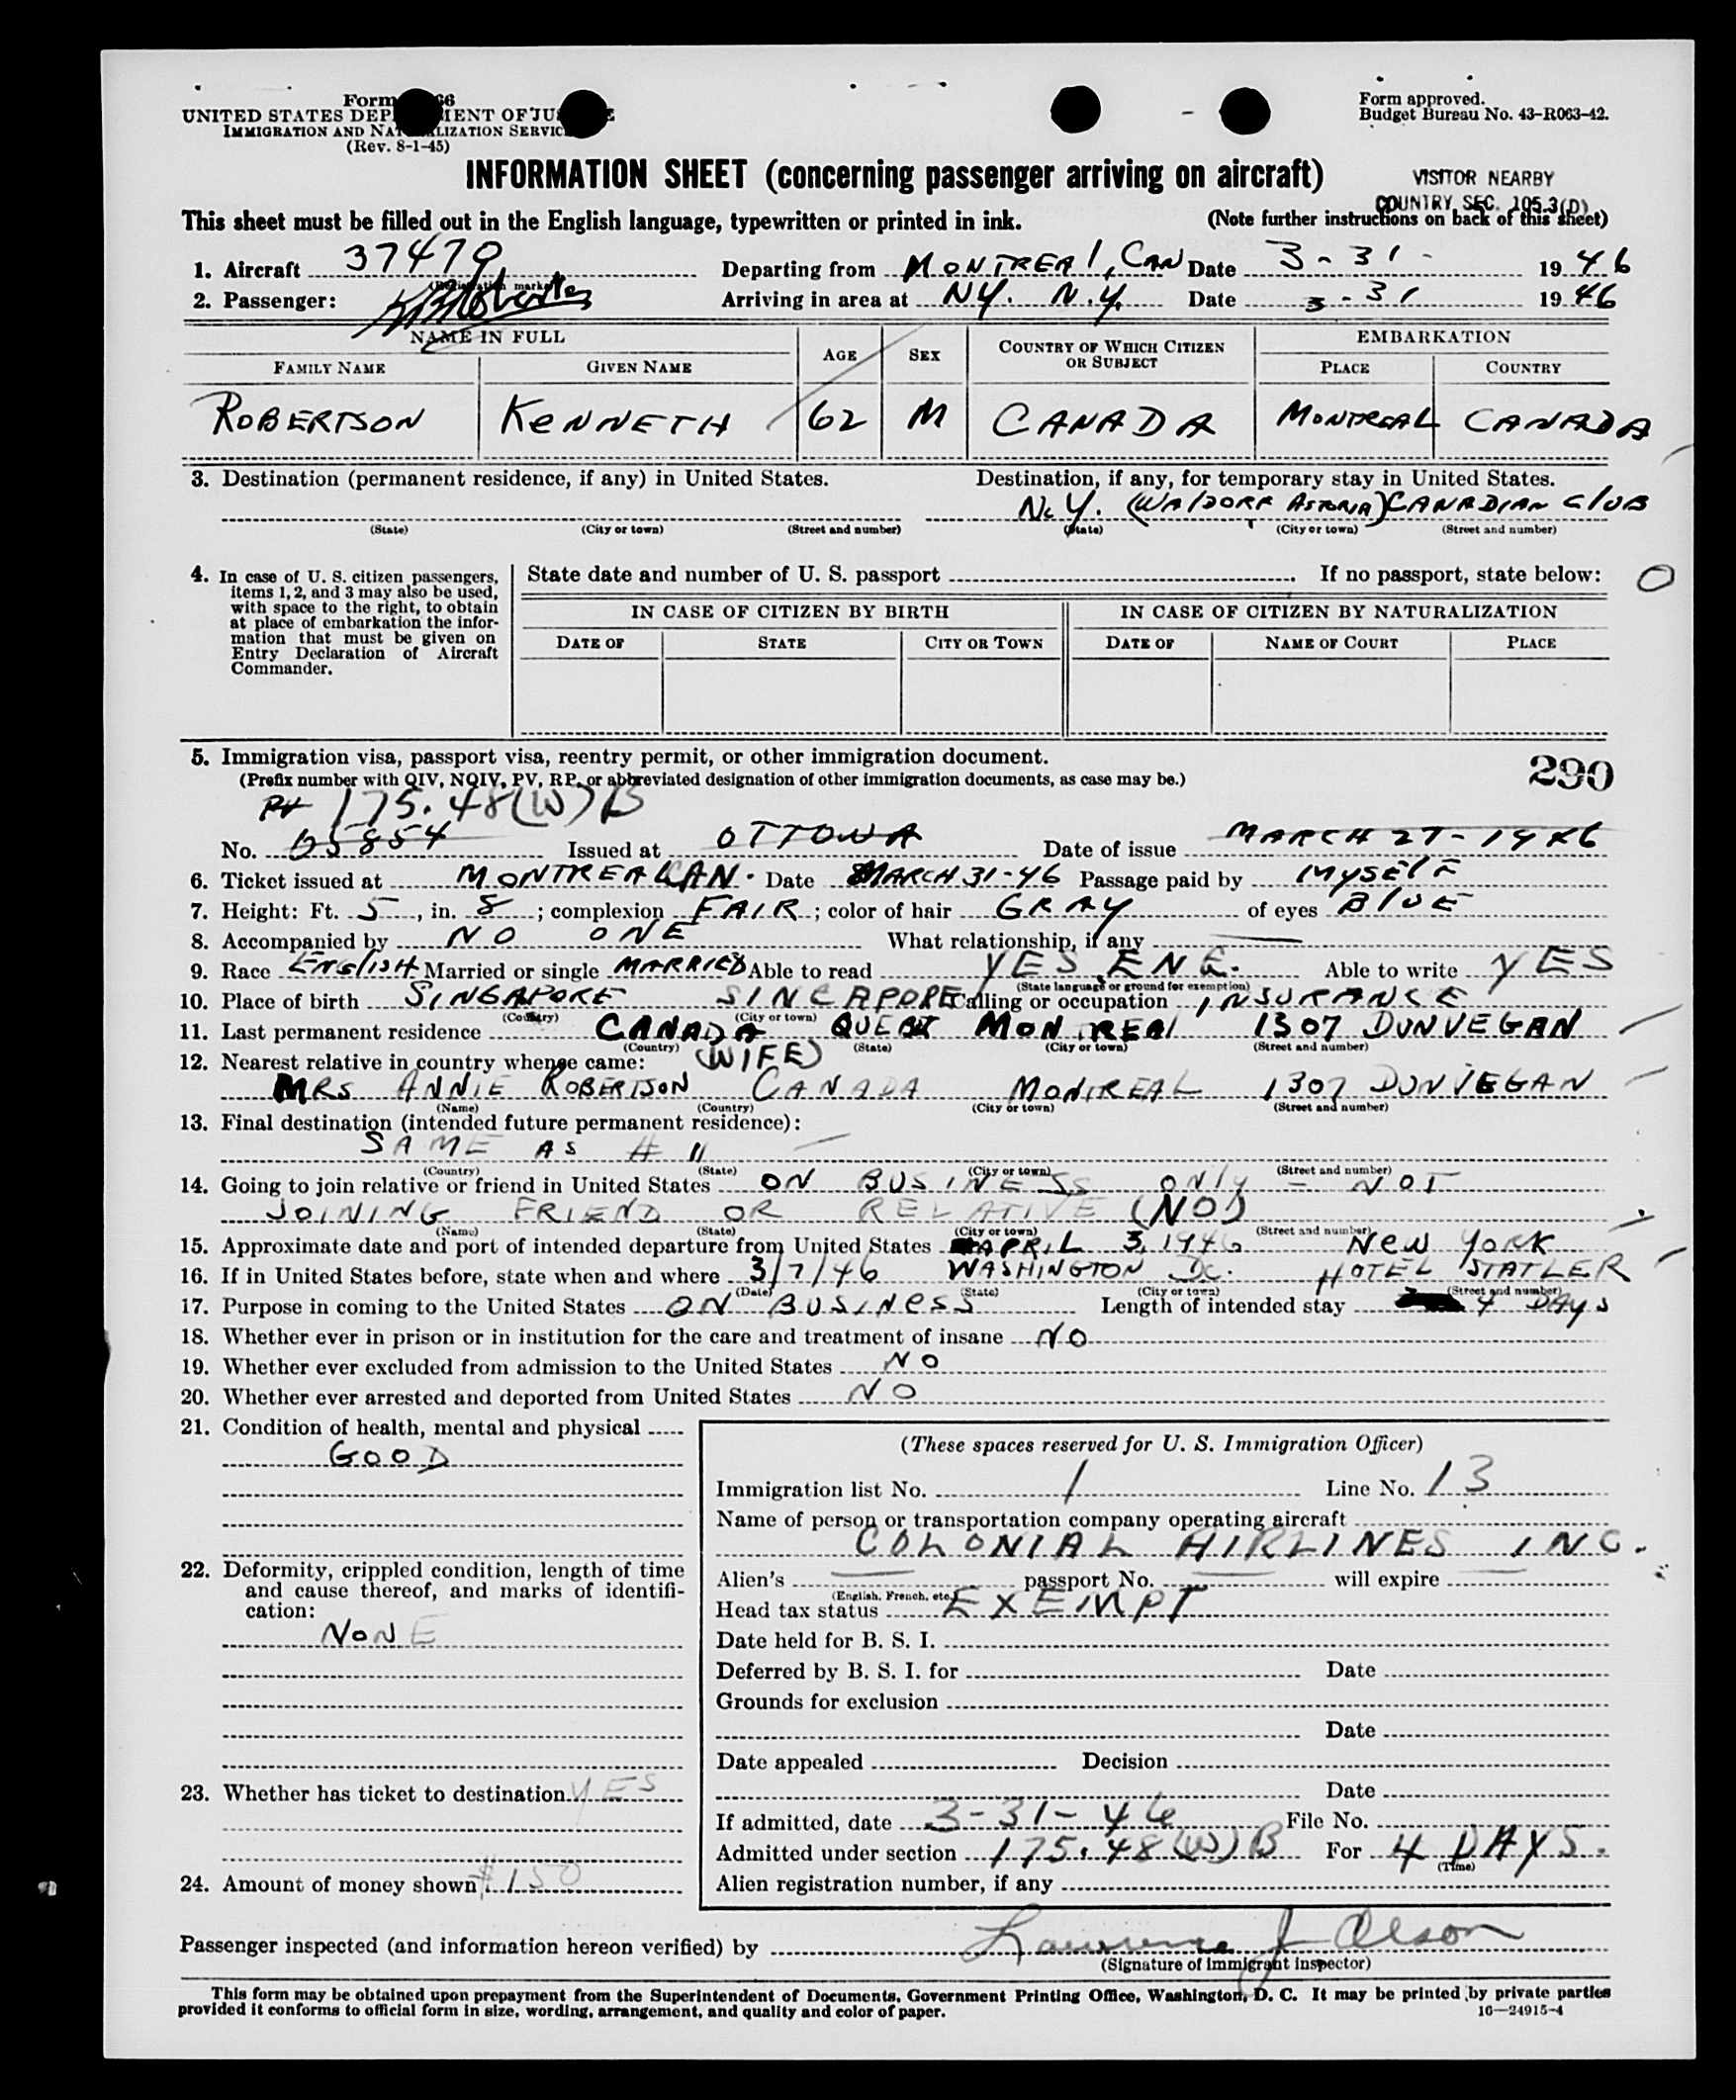 Form 66
UNITED STATES DEP MENT OF JUS E
IMMIGRATION AND NAT LIZATION SERVIC
(Rev. 8-1-45)
Form approved.
Budget Bureau No. 43-R063-42.
INFORMATION SHEET (concerning passenger arriving on aircraft)
VISITOR NEARBY
COUNTRY SEC. 105.3(D)
This sheet must be filled out in the English language, typewritten or printed in ink. (Note further instructions on back of this sheet)
1. Aircraft 37479 Departing from MONTREAl, CAN Date 3-31- 1946
(Registration marks)
2. Passenger: Arriving in area at NY. N.Y. Date 3-31 1946
NAME IN FULL AGE SEX COUNTRY OF WHICH CITIZEN OR SUBJECT EMBARKATION
FAMILY NAME GIVEN NAME PLACE COUNTRY
ROBERTSON KeNNETH 62 M CANADA MONTREAL CANADA
3. Destination (permanent residence, if any) in United States. Destination, if any, for temporary stay in United States.
N.Y. (WAlDORF ASTORIA) CANADIAN ClUB
(State) (City or town) (Street and number) (State) (City or town) (Street and number)
4. In case of U. S. citizen passengers, items 1, 2, and 3 may also be used, with space to the right, to obtain at place of embarkation the information that must be given on Entry Declaration of Aircraft Commander.
State date and number of U. S. passport . If no passport, state below: O
IN CASE OF CITIZEN BY BIRTH IN CASE OF CITIZEN BY NATURALIZATION
DATE OF STATE CITY OR TOWN DATE OF NAME OF COURT PLACE
5. Immigration visa, passport visa, reentry permit, or other immigration document.
(Prefix number with QIV, NQIV, PV, RP, or abbreviated designation of other immigration documents, as case may be.)
290
PV 175.48(W)B
No. 05854 Issued at OTTOWA Date of issue MARCH 27-1946
6. Ticket issued at MONTREAL CAN. Date MARCH 31-46 Passage paid by MYSElF
7. Height: Ft. 5, in. 8; complexion FAIR; color of hair GRAY of eyes BlUE
8. Accompanied by NO ONE What relationship, if any —
9. Race ENGlISH Married or single MARRIED Able to read YES ENG. Able to write YES
(State language or ground for exemption)
10. Place of birth SINGAPORE SINGAPORE Calling or occupation INSURANCE
(Country) (City or town)
11. Last permanent residence CANADA QUEBE MONTREAl 1307 DUNVEGAN
(Country) (State) (City or town) (Street and number)
12. Nearest relative in country whence came: (WIFE)
MRS ANNIE ROBERTSON CANADA MONTREAL 1307 DUNVEGAN
(Name) (Country) (City or town) (Street and number)
13. Final destination (intended future permanent residence):
SAME AS # 11
(Country) (State) (City or town) (Street and number)
14. Going to join relative or friend in United States ON BUSINESS ONlY - NOT
JOINING FRIEND OR RELATIVE (NO)
(Name) (State) (City or town) (Street and number)
15. Approximate date and port of intended departure from United States APRIL 3, 1946 NeW YORK
16. If in United States before, state when and where 3/7/46 WASHINGTON DC. HOTEL STATLER
(Date) (State) (City or town) (Street and number)
17. Purpose in coming to the United States ON BUSINeSS Length of intended stay 4 DAYS
18. Whether ever in prison or in institution for the care and treatment of insane NO
19. Whether ever excluded from admission to the United States NO
20. Whether ever arrested and deported from United States NO
21. Condition of health, mental and physical
GOOD
22. Deformity, crippled condition, length of time and cause thereof, and marks of identification:
NONE
23. Whether has ticket to destination YES
24. Amount of money shown $150
(These spaces reserved for U. S. Immigration Officer)
Immigration list No. 1 Line No. 13
Name of person or transportation company operating aircraft
COLONIAL AIRLINES INC.
Alien's — passport No. — will expire —
(English, French, etc.)
Head tax status EXEMPT
Date held for B. S. I.
Deferred by B. S. I. for Date
Grounds for exclusion
Date
Date appealed Decision
Date
If admitted, date 3-31-46 File No.
Admitted under section 175.48(W)B For 4 DAYS.
(Time)
Alien registration number, if any
Passenger inspected (and information hereon verified) by Lawrence J Olson
(Signature of immigrant inspector)
This form may be obtained upon prepayment from the Superintendent of Documents, Government Printing Office, Washington, D. C. It may be printed by private parties
provided it conforms to official form in size, wording, arrangement, and quality and color of paper. 16—24915-4